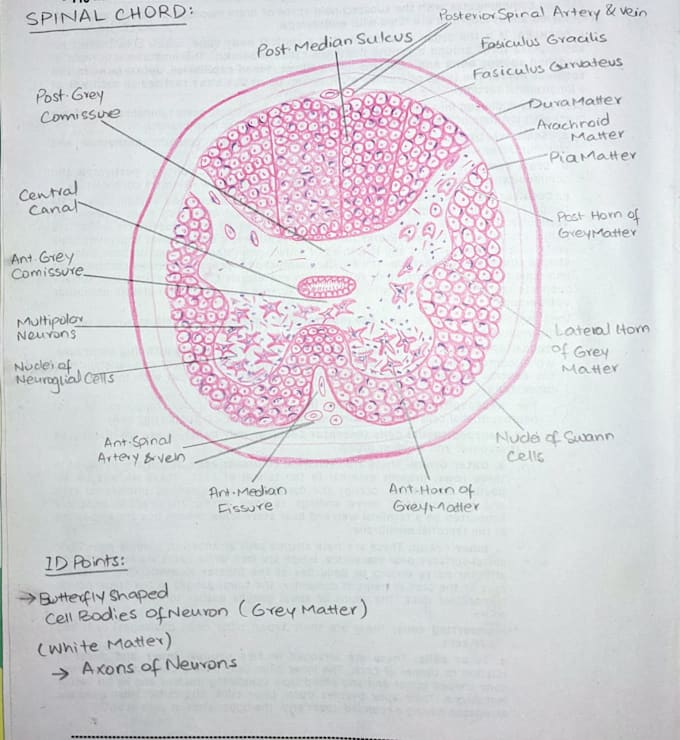 SPINAL CHORD:
Posterior Spinal Artery & vein
Post Median Sulcus
Fasiculus Gracilis
Fasiculus Cunvateus
Post. Grey
Comissure
Dura Matter
Arachnoid
Matter
Pia Matter
Central
Canal
Post Horn of
Grey Matter
Ant. Grey
Comissure
Multipolar
Neurons
Lateral Horn
of Grey
Matter
Nuclei of
Neuroglial Cells
Ant. Spinal
Artery & vein
Nuclei of Swann
Cells
Ant. Median
Fissure
Ant. Horn of
Grey Matter
ID Points:
→ Butterfly Shaped
Cell Bodies Of Neuron (Grey Matter)
(White Matter)
→ Axons of Neurons